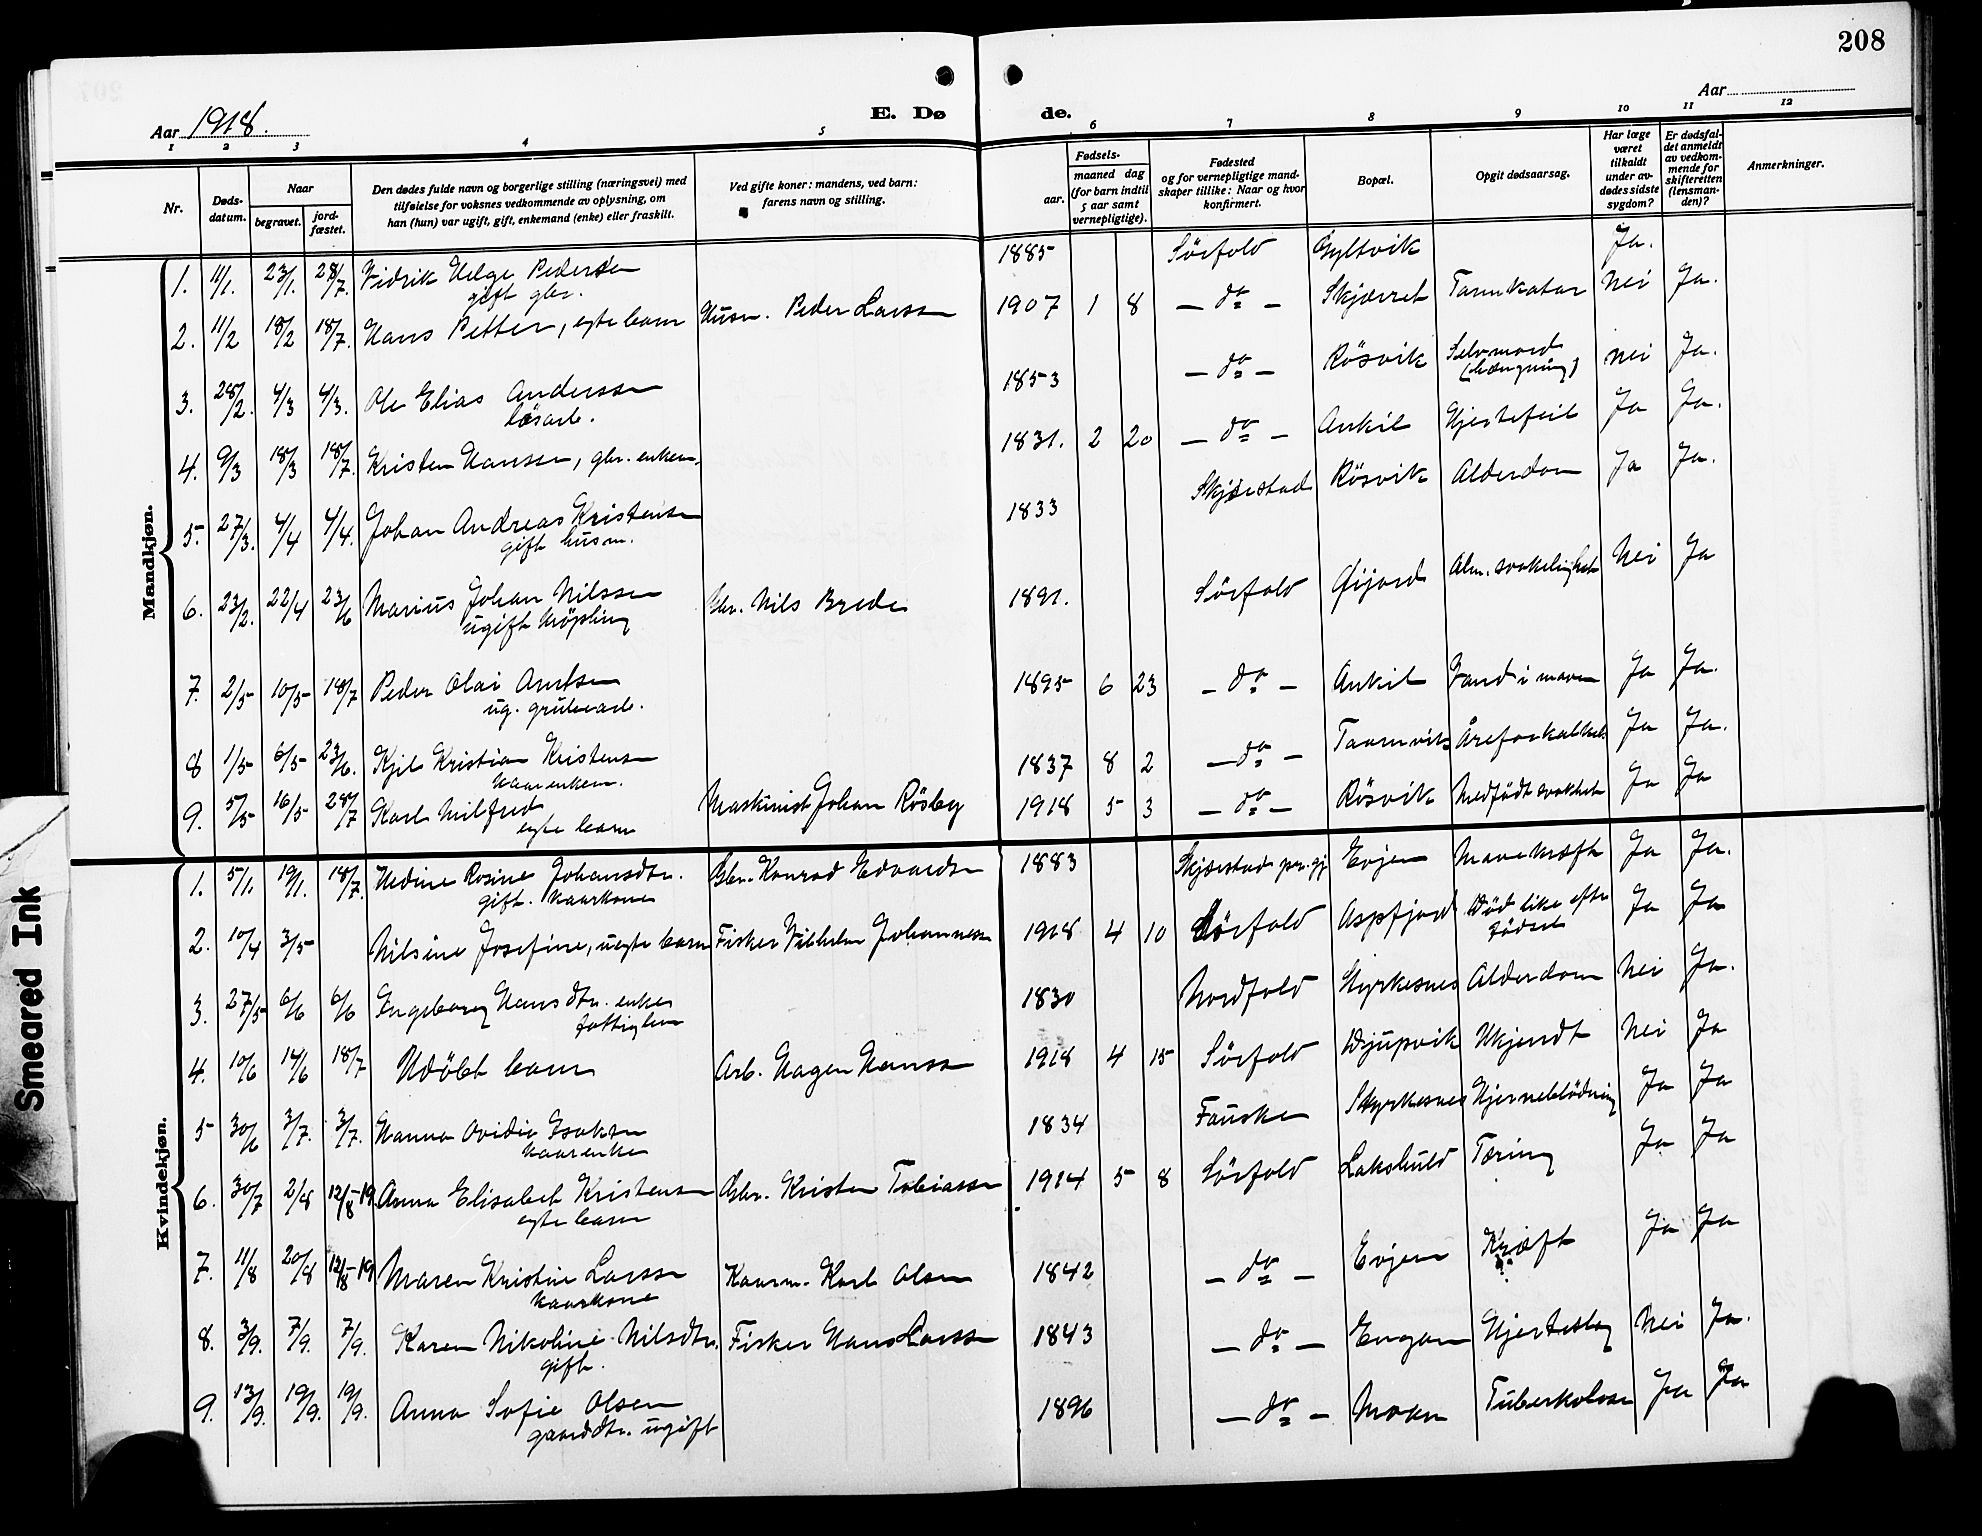 208
Aar 1918.
E. Døde.
Aar
1 2 3 4 5 6 7 8 9 10 11 12
Nr.
Døds-
datum.
Naar
begravet.
jord-
fæstet.
Den dødes fulde navn og borgerlige stilling (næringsvei) med
tilføielse for voksnes vedkommende av oplysning, om
han (hun) var ugift, gift, enkemand (enke) eller fraskilt.
Ved gifte koner: mandens, ved barn:
farens navn og stilling.
Fødsels-
aar.
maaned dag
(for barn indtil
5 aar samt
vernepligtige).
Fødested
og for vernepligtige mand-
skaper tillike: Naar og hvor
konfirmert.
Bopæl.
Opgit dødsaarsag.
Har læge
været
tilkaldt
under av-
dødes sidste
sygdom?
Er dødsfal-
det anmeldt
av vedkom-
mende for
skifteretten
(lensman-
den)?
Anmerkninger.
Mandkjøn.
1. 11/1. 23/1. 28/7. Fidrik Helge Pedersen 1885 Sörfold Gyltvik Ja.
gift gbr.
2. 11/2 18/2 18/7. Hans Petter, egte barn Husm. Peder Larssen 1907 1 8 — do — Skjærret Tarmkatar Nei Ja.
3. 28/2. 4/3 4/3. Ole Elias Anderssen 1853 — do — Rösvik Selvmord nei Ja.
lösarb. (hængning)
4. 9/3 18/3 18/7. Kristen Hanssen, gbr. enkem. 1831. 2 20 — do — Ankil Hjertefeil Ja Ja.
5. 27/3. 4/4 4/4. Johan Andreas Kristensen 1833 Skjærstad Rösvik Alderdom Ja Ja.
gift husm.
6. 23/2. 22/4 23/6 Marius Johan Nilssen Gbr. Nils Brede 1891. Sörfold Öijord Alm. svakelighet Nei Ja
ugift kröpling
7. 2/5 10/5 18/7 Peder Olai Arntsen 1895 6 23 — do — Ankil Vand i maven Ja Ja.
ug. grubearb.
8 1/5 6/5 23/6. Kjil Kristian Kristensen 1837 8 2 — do — Taarnvik Åreforkalkn. Ja Ja.
kaarenkem.
9. 5/5 16/5 28/7 Karl Milfred Maskinist Johan Rösby 1918 5 3 — do — Rösvik Medfödt svakhet Ja Ja
egte barn
Kvindekjøn.
1. 5/1. 19/1. 18/7. Hedine Rosine Johansdtr. Gbr. Konrad Edvardsen 1883 Skjærstad pr.gj. Evjen Mavekræft Ja Ja.
gift. kaarkone
2. 10/4 3/5 Nilsine Josefine, uegte barn Fisker Vilhelm Johannessen 1918 4 10 Sörfold Aspfjord Död like efter Ja Ja
födsel
3. 27/5 6/6 6/6 Ingeborg Hansdtr. enke 1830 Nordfold Styrkesnes Alderdom Nei Ja.
fattiglem
4. 10/6 14/6 18/7 Udöbt barn Arb. Hagen Hanssen 1918 4 15 Sörfold Djupvik Ukjendt Nei Ja
5 30/6 3/7. 3/7. Hanna Ovidie Isaksen 1834 Fauske Styrkesnes Hjerneblödning Ja Ja
kaarenke
6. 30/7 2/8 12/8-19 Anna Elisabet Kristensen Gbr. Kristen Tobiassen 1914 5 8 Sörfold Lakshuld Tæring Ja Ja
egte barn
7. 11/8 20/8 12/8-19 Maren Kristine Larssen Kaarm. Karl Olsen 1842 — do — Evjen Kræft Ja Ja
kaarkone
8. 3/9. 7/9. 7/9. Karen Nikoline Nilsdtr. Fisker Hans Larssen 1843 — do — Engan Hjerteslag Nei Ja.
gift.
9. 13/9. 19/9. 19/9. Anna Sofie Olsen 1896 — do — Moan Tuberkolose Ja Ja
gaarddtr. ugift
Smeared Ink